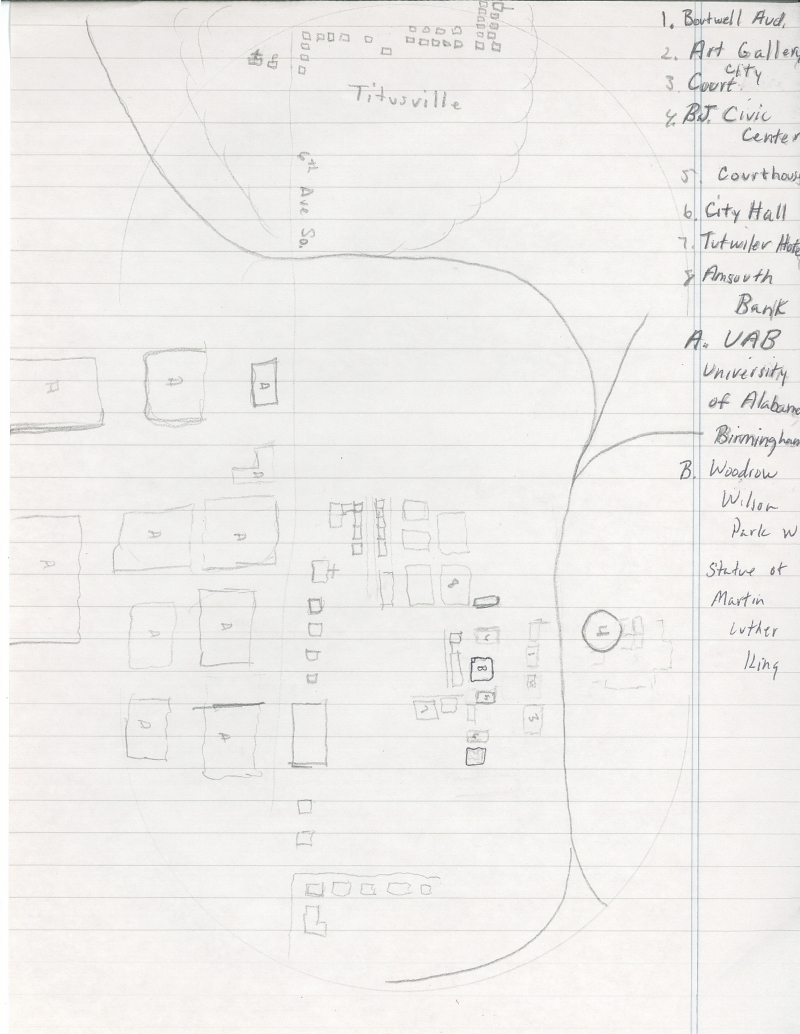 1. Boutwell Aud.
2. Art Gallery
city
3 Court
4. B.J. Civic
Center
5. Courthous
6. City Hall
7. Tutwiler Hote
8 Amsouth
Bank
A. UAB
University
of Alabama
Birmingham
B. Woodrow
Wilson
Park w
Statue of
Martin
Luther
King
Titusville
6th Ave So.
A
A
A
A
A
A
A
A
A
A
A
8
4
B
1
3